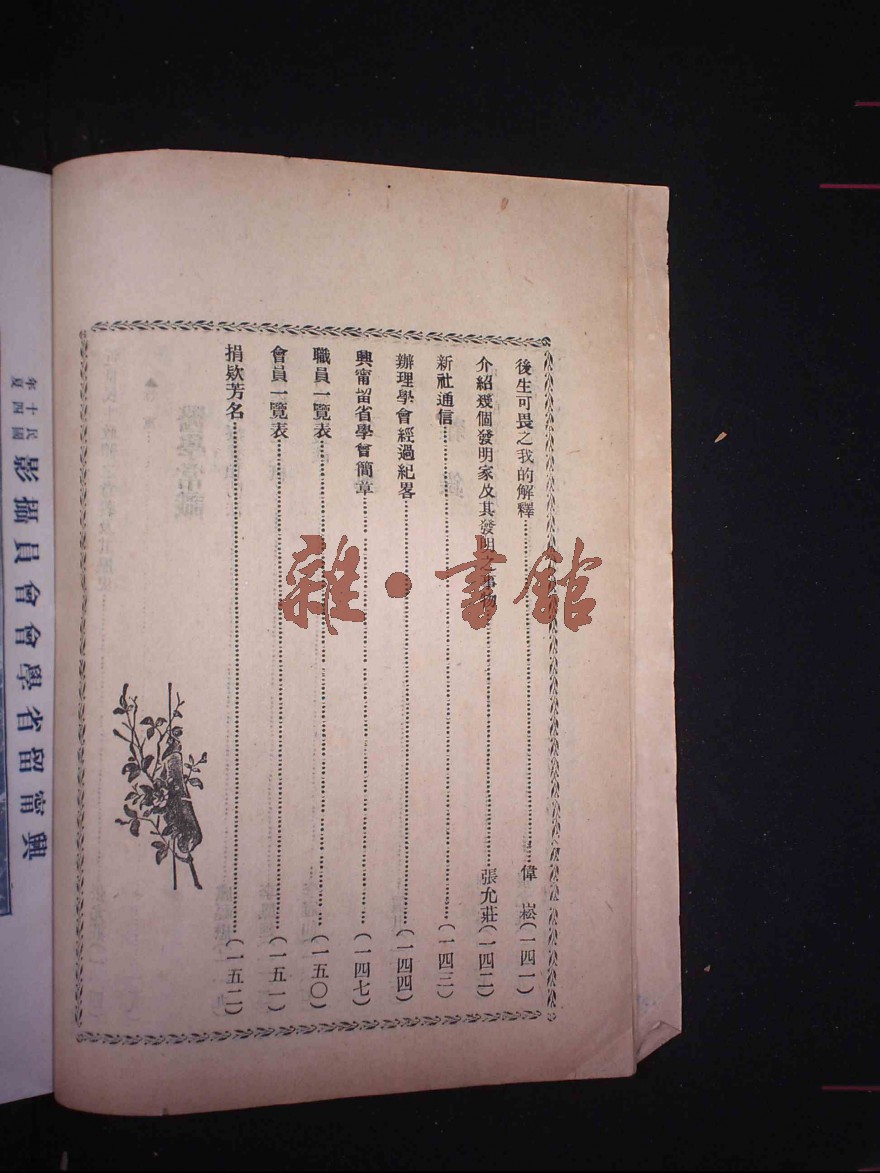 後生可畏之我的解釋……偉崧(一四一)
介紹幾個發明家及其發明之事物……張允莊(一四二)
新社通信……(一四三)
辦理學會經過紀畧……(一四四)
興甯留省學會簡章……(一四七)
職員一覽表……(一五〇)
會員一覽表……(一五一)
捐欵芳名……(一五二)
雜·書館
興甯留省學會會員攝影
民國十四年夏